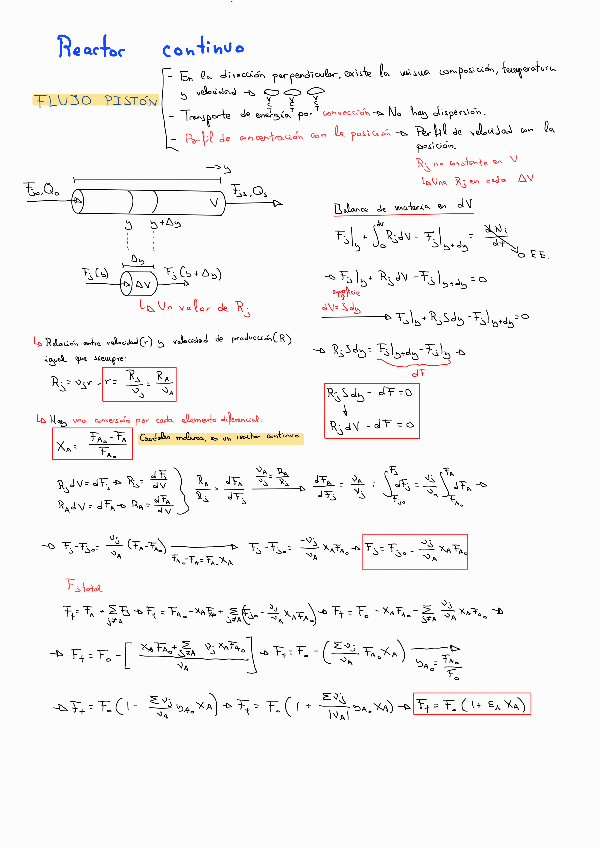 Reactor continuo
FLUJO PISTÓN
- En la dirección perpendicular, existe la misma composición, temperatura
y velocidad →
- Transporte de energía por convección → No hay dispersión.
- Perfil de concentración con la posición → Perfil de velocidad con la
posición.
Rj no constante en V
↳ Una Rj en cada ΔV
→ y
Fj0, Q0
V
Fjs, Qs
y y+Δy
Δy
Fj(y) ΔV Fj(y+Δy)
↳ Un valor de Rj
Balance de materia en dV
Fj|y + ∫₀^dV Rj dV - Fj|y+dy = dNj/dt → 0 E.E.
→ Fj|y + Rj dV - Fj|y+dy = 0
superficie
dV = Sdy → Fj|y + Rj Sdy - Fj|y+dy = 0
→ Rj Sdy = Fj|y+dy - Fj|y →
dF
Rj Sdy - dF = 0
↓
Rj dV - dF = 0
↳ Relación entre velocidad (r) y velocidad de producción (R)
igual que siempre:
Rj = νj r → r = Rj/νj = RA/νA
↳ Hay una conversión por cada elemento diferencial:
XA = (FA0 - FA)/FA0
Caudales molares, es un reactor continuo
Rj dV = dFj → Rj = dFj/dV
RA dV = dFA → RA = dFA/dV
RA/Rj = dFA/dFj
νA/νj = RA/Rj → dFA/dFj = νA/νj ; ∫_Fj0^Fj dFj = νj/νA ∫_FA0^FA dFA →
→ Fj - Fj0 = νj/νA (FA - FA0) → Fj - Fj0 = -νj/νA XA FA0 → Fj = Fj0 - νj/νA XA FA0
FA0 - FA = FA0 XA
Fj total
Ft = FA + Σ_j≠A Fj → Ft = FA0 - XA FA0 + Σ_j≠A (Fj0 - νj/νA XA FA0) → Ft = F0 - XA FA0 - Σ_j≠A νj/νA XA FA0 →
→ Ft = F0 - [(XA FA0 + Σ_j≠A νj XA FA0)/νA] → Ft = F0 - (Σνj/νA FA0 XA) →
yA0 = FA0/F0
→ Ft = F0 (1 - Σνj/νA yA0 XA) → Ft = F0 (1 + Σνj/|νA| yA0 XA) → Ft = F0 (1 + εA XA)